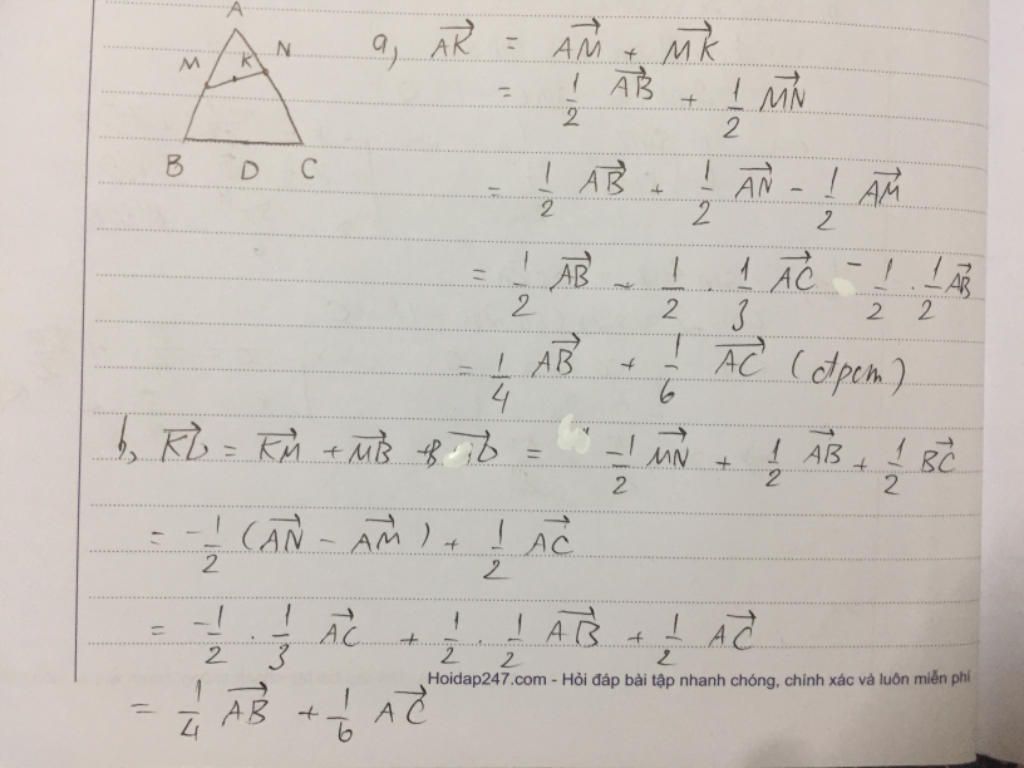 A
M K N
B D C
a, $\overrightarrow{AK} = \overrightarrow{AM} + \overrightarrow{MK}$
$= \frac{1}{2} \overrightarrow{AB} + \frac{1}{2} \overrightarrow{MN}$
$= \frac{1}{2} \overrightarrow{AB} + \frac{1}{2} \overrightarrow{AN} - \frac{1}{2} \overrightarrow{AM}$
$= \frac{1}{2} \overrightarrow{AB} - \frac{1}{2} \cdot \frac{1}{3} \overrightarrow{AC} - \frac{1}{2} \cdot \frac{1}{2} \overrightarrow{AB}$
$= \frac{1}{4} \overrightarrow{AB} + \frac{1}{6} \overrightarrow{AC}$ (đpcm)
b, $\overrightarrow{KD} = \overrightarrow{KM} + \overrightarrow{MB} + \overrightarrow{BD} = -\frac{1}{2} \overrightarrow{MN} + \frac{1}{2} \overrightarrow{AB} + \frac{1}{2} \overrightarrow{BC}$
$= -\frac{1}{2} (\overrightarrow{AN} - \overrightarrow{AM}) + \frac{1}{2} \overrightarrow{AC}$
$= -\frac{1}{2} \cdot \frac{1}{3} \overrightarrow{AC} + \frac{1}{2} \cdot \frac{1}{2} \overrightarrow{AB} + \frac{1}{2} \overrightarrow{AC}$
Hoidap247.com - Hỏi đáp bài tập nhanh chóng, chính xác và luôn miễn phí
$= \frac{1}{4} \overrightarrow{AB} + \frac{1}{6} \overrightarrow{AC}$